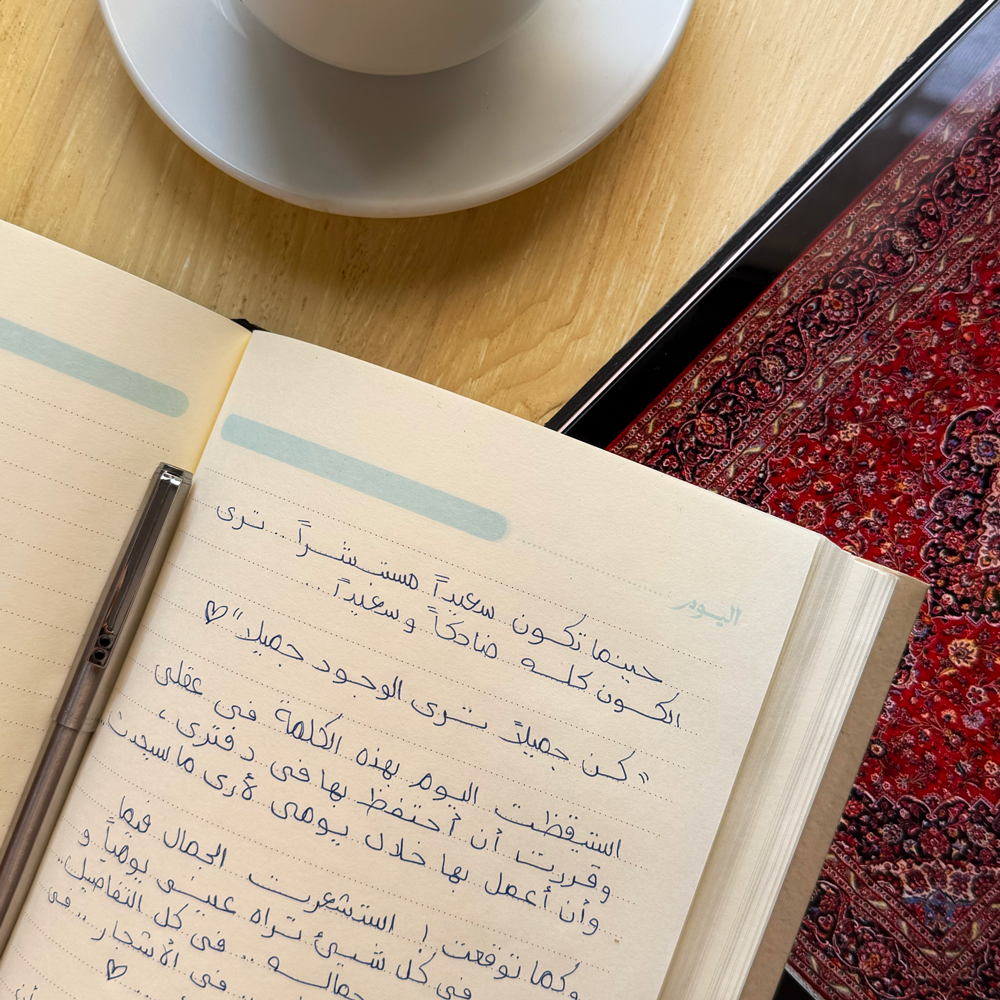 اليوم
حينما تكون سعيداً مستبشراً ... ترى
الكون كله ضاحكاً وسعيداً
"كن جميلاً ترى الوجود جميلا" ♡
استيقظت اليوم بهذه الكلمة في عقلي
وقررت أن أحتفظ بها في دفتري،
وأن أعمل بها خلال يومي لأرى ما سيحدث..
وكما توقعت! استشعرت الجمال فيما
في كل شيئ تراه عيني يومياً و
جماله .. في كل التفاصيل..
في الأشجار .. في
♡